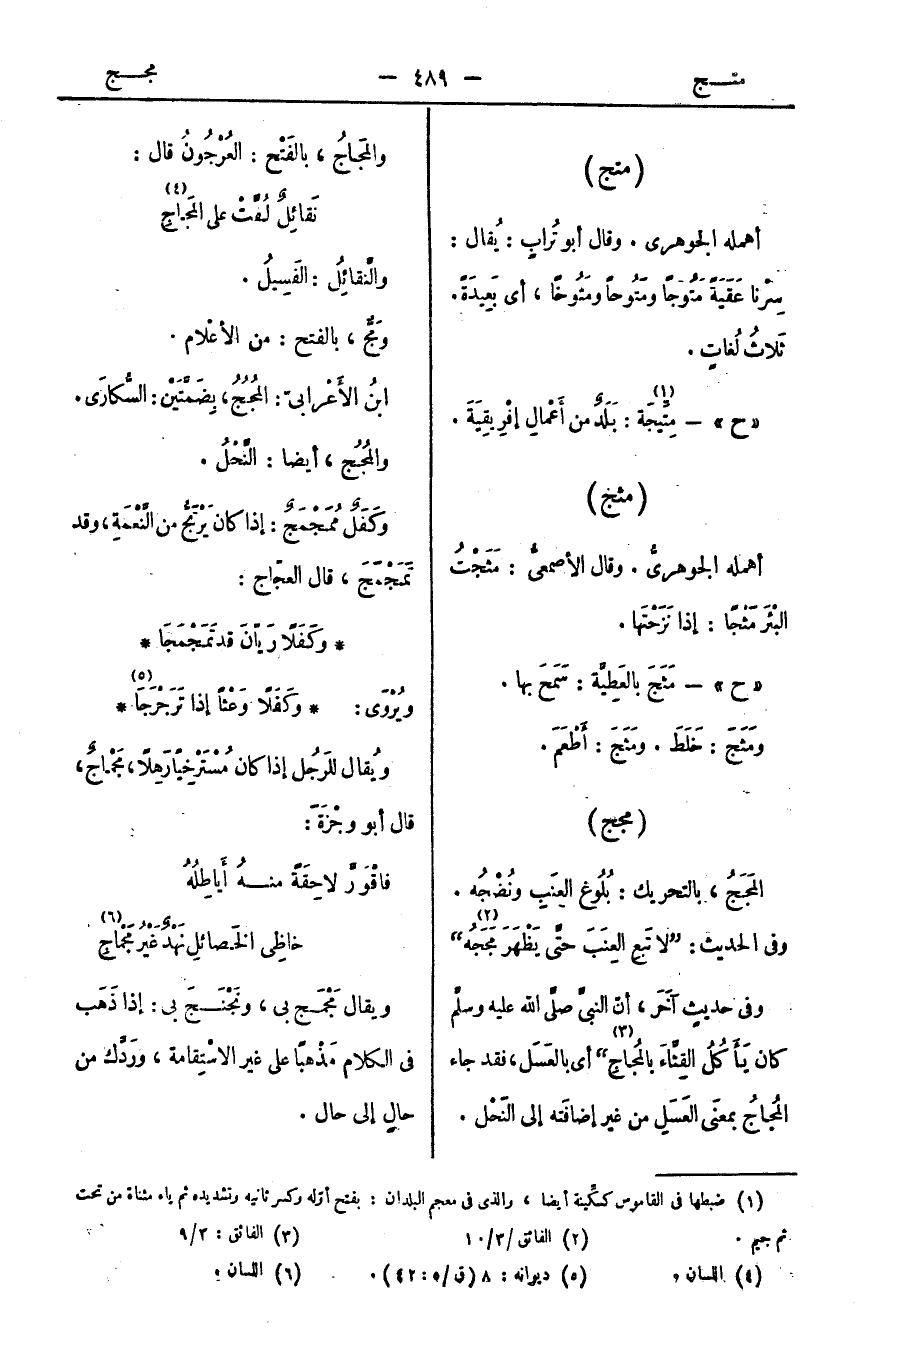 متج
— ٤٨٩ —
مجج
(متج)
أهمله الجوهرى . وقال أبو تُرابٍ : يُقال :
سِرْنا عَقَبَةً مَتُوجًا ومَتُوحاً ومَتُوخًا ، أى بَعِيدَةً.
ثَلاثُ لُغاتٍ .
«ح» — مِتِّيجَة (١) : بَلَدٌ من أَعْمالِ إفْرِيقِيَةَ .
(مثج)
أهمله الجوهرىُّ . وقال الأصمعىُّ : مَثَجْتُ
البِئْرَ مَثْجًا : إذا نَزَحْتَها .
«ح» — مَثَجَ بالعَطِيَّة : سَمَحَ بها .
ومَثَجَ : خَلَطَ . ومَثَجَ : أَطْعَمَ .
(مجج)
المَجَجُ ، بالتحريك : بُلُوغ العِنَبِ ونُضْجُه .
وفى الحديث : "لا تَبِعِ العِنَبَ حتَّى يَظْهَرَ مَجَجُه" (٢)
وفى حديثٍ آخَرَ ، أنّ النبىَّ صلَّى الله عليه وسلَّم
كان يَأْكُلُ القِثَّاءَ بالمُجاجِ" (٣) أى بالعَسَل ، فقد جاء
المُجاجُ بمعنَى العَسَلِ من غير إضافَته إلى النَّحْل .
والمَجاجُ ، بالفَتْح : العُرْجُونُ قال :
نَقائِلٌ لُفَّتْ على المَجاجِ (٤)
والنَّقائِلُ : الفَسِيلُ .
ومَجٌّ ، بالفتح : من الأعْلام .
ابنُ الأَعْرابىّ : المُجُجُ ، بِضَمَّتَيْن : السُّكارَى .
والمُجُج ، أيضا : النَّحْلُ .
وكَفَلٌ مُمَجْمَجٌ : إذا كان يَرْتَجُّ من النَّعْمَةِ ، وقد
تَمَجْمَجَ ، قال العجّاج :
* وكَفَلًا رَيّانَ قد تَمَجْمَجَا *
ويُرْوَى : * وكَفَلًا وَعْثًا إذا تَرَجْرَجَا (٥) *
ويُقال للرَجُل إذا كان مُسْتَرْخِيًا رَهِلًا ، مَجْماجٌ ،
قال أبو وجْزَةَ :
فاقْوَرَّ لاحِقَةً منـه أَياطِلُهُ
خاظِى الخَصائلِ نَهْدٌ غَيْرُ مَجْماجِ (٦)
ويقال مَجْمَج بى ، ونَجْنَـج بى : إذا ذَهَب
فى الكلام مَذْهبًا على غير الاسْتِقامة ، ورَدَّك من
حالٍ إلى حال .
(١) ضبطها فى القاموس كسكِّينة أيضا ، والذى فى معجم البلدان : بفتح أوّله وكسر ثانيه وتشديده ثم ياء مثناة من تحت
ثم جيم .
(٢) الفائق/٣/١٠
(٣) الفائق : ٩/٣
(٤) اللسان .
(٥) ديوانه : ٨ (ق/٥ : ٤٢) .
(٦) اللسان .